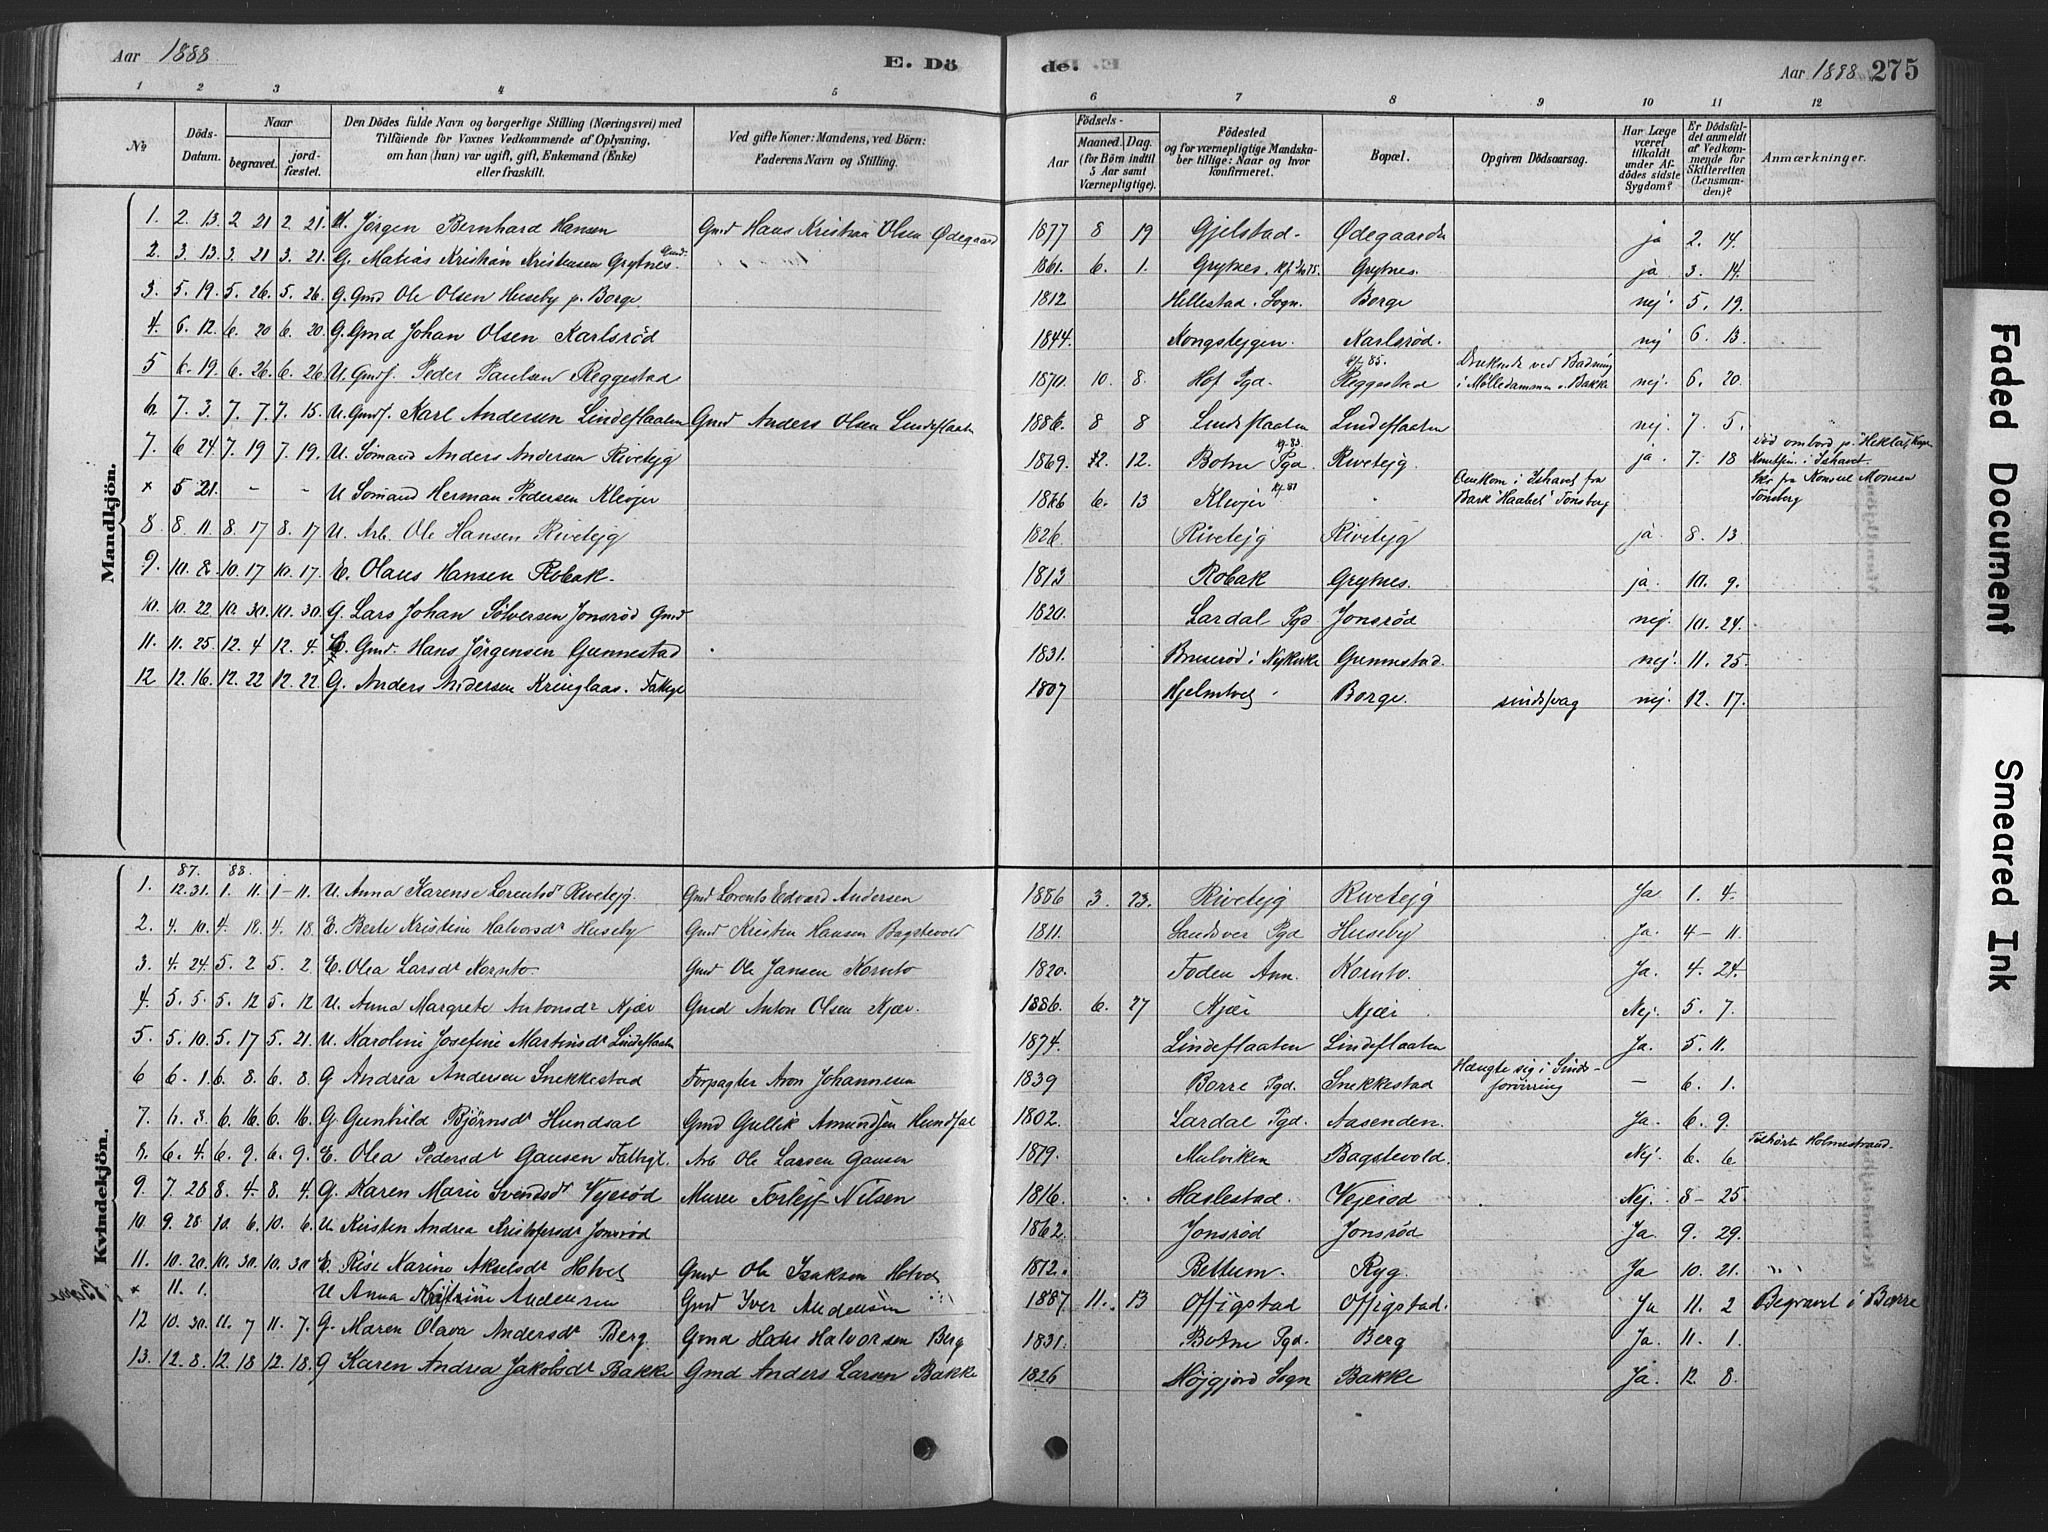 Aar 1888
E. Dö
de.
Aar 1888. 275
1 2 3 4 5 6 7 8 9 10 11 12
No
Döds-Datum.
Naar
begravet.
jord-fæstet.
Den Dödes fulde Navn og borgerlige Stilling (Næringsvei) med
Tilföiende for Voxnes Vedkommende af Oplysning,
om han (hun) var ugift, gift, Enkemand (Enke)
eller fraskilt.
Ved gifte Koner: Mandens, ved Börn:
Faderens Navn og Stilling.
Födsels-
Aar
Maaned. Dag.
(for Börn indtil
5 Aar samt
Værnepligtige).
Födested
og for værnepligtige Mandska-
ber tillige: Naar og hvor
konfirmeret.
Bopæl.
Opgiven Dödsaarsag.
Har Læge
været
tilkaldt
under Af-
dödes sidste
Sygdom?
Er Dödsfal-
det anmeldt
af Vedkom-
mende for
Skifteretten
(Lensman-
den)?
Anmærkninger.
Mandkjön.
1. 2. 13. 2 21 2. 21. U. Jörgen Bernhard Hansen Gmd Hans Kristian Olsen Ødegaard 1877 8 19 Gjelstad. Ødegaarden ja 2. 14.
2. 3. 13. 3. 21 3. 21. G. Matias Kristian Kristensen Grytnes. Gmd. 1861. 6. 1. Grytnes. Grytnes. ja. 3. 14.
3. 5. 19. 5. 26. 5. 26. G. Gmd Ole Olsen Huseby p. Borge. 1812 Hillestad. Sogn. Borge nej. 5. 19.
4. 6. 12. 6. 20 6. 20. G. Gmd Johan Olsen Karlsröd 1844. Kongstejgen. Karlsröd. nej 6. 13.
5 6. 19. 6. 26. 6. 26. U. Gmdf. Peder Paulsen Reggestad 1870. 10. 8. Hof Pgd. Kf. 85. Reggestad Druknede ved Badning i Mølledammen p. Bakke nej. 6. 20.
6. 7. 3. 7. 7. 7. 15. U. Gmdf. Karl Andersen Lindeflaaten Gmd Anders Olsen Lindeflaaten 1886. 8 8 Lindeflaaten Lindeflaaten nej. 7. 5.
7. 6 24. 7. 19 7. 19. U. Sömand Anders Andersen Rivetejg 1869. 12. 12. Botne Pgd. Kf. 83. Rivetejg. ja. 7. 18 Död ombord p. "Hekla", i Ishavet.
× 5 21. - - U Sömand Herman Pedersen Klevjer 1866 6. 13 Klevjer Kf. 81 " Omkom i Ishavet fra Bark "Haabet" Tønsberg Skr fra Konsul Monsen Tønsberg
8. 8. 11. 8. 17 8. 17 U. Arb. Ole Hansen Rivetejg 1826. Rivetejg Rivetejg ja. 8. 13.
9. 10. 8. 10. 17 10. 17. E. Olaus Hansen Robak. 1813 Robak Grytnes. ja. 10. 9.
10. 10. 22 10. 30. 10. 30. G. Lars Johan Sölversen Jonsröd Gmd 1820. Lardal Pgd Jonsröd nej. 10. 24.
11. 11. 25. 12. 4 12. 4. E. Gmd. Hans Jörgensen Gunnestad 1831. Bruseröd i Nykirke Gunnestad. nej. 11. 25.
12 12. 16. 12. 22 12. 22 G. Anders Andersen Kringlaas. Fattigl 1807 Hjelmtvet Borge. sindssvag nej. 12. 17.
Kvindekjön.
87. 88.
1. 12. 31. 1. 11. 1-11. U. Anna Karense Lorentsdr Rivetejg. Gmd Lorents Edvard Andersen 1886 3. 23. Rivetejg Rivetejg Ja 1. 4.
2. 4. 10. 4. 18. 4. 18. E. Berte Kristine Halvorsdr Huseby Gmd Kristen Hansen Bagstevold 1811. Sandsver Pgd Huseby Ja. 4-11.
3. 4. 24. 5. 2 5. 2 E. Olea Larsdr Kornto. Gmd Ole Jansen Kornto 1820. Foden Ann. Kornto. Ja. 4. 24.
4. 5. 5. 5. 12 5. 12 U. Anna Margrete Antonsdr Kjær Gmd Anton Olsen Kjær. 1886. 6. 27 Kjær Kjær Nej. 5. 7.
5. 5. 10. 5. 17 5. 21. U. Karoline Josefine Martinsdr Lindeflaaten 1874. Lindeflaaten Lindeflaaten Ja. 5. 11.
6 6. 1. 6. 8. 6. 8. G Andrea Andersen Snekkestad Forpagter Aron Johannesen 1839 Borre Pgd. Snekkestad Hængte sig i Sinds-forvirring - 6. 1.
7. 6. 8. 6. 16. 6. 16. G. Gunhild Bjørnsdr Hundsal Gmd Gullik Amundsen Hundsal 1802. Lardal Pgd. Aasenden. Ja. 6. 9.
8. 6. 4. 6. 9. 6. 9. E. Olea Pedersdr Gausen Fattigl. Arb Ole Larsen Gausen 1819. Mulviken Bagstevold. Nej. 6. 6. Tilhört Holmestrand.
9. 7. 28 8. 4. 8. 4. G. Karen Marie Svendsdr Vejeröd Murer Torleff Nilsen 1816. Haslestad. Vejeröd Nej. 8-25
10. 9. 28. 10. 6. 10. 6. U. Kirsten Andrea Kristofersdr Jonsröd 1862. Jonsröd Jonsröd Ja. 9. 29.
11. 10. 20. 10. 30 10. 30 E. Rise Karine Akselsdr Hotvet Gmd Ole Isaksen Hotvet 1812. Bettum. Ryg. Ja 10. 21.
i Borre
× 11. 1. U Anna Kristine Andersen Gmd Iver Andersen 1887 11. 13 Offigstad Offigstad. Ja 11. 2 Begravet i Borre
12 10. 30. 11. 7 11. 7. G. Maren Olava Andersdr Berg. Gmd Hans Halvorsen Berg 1831. Botne Pgd. Berg Ja. 11. 1.
13. 12. 8. 12. 18 12. 18. G Karen Andrea Jakobsdr Bakke Gmd Anders Larsen Bakke 1826 Højgjord Sogn Bakke Ja. 12 8.
Faded Document
Smeared Ink